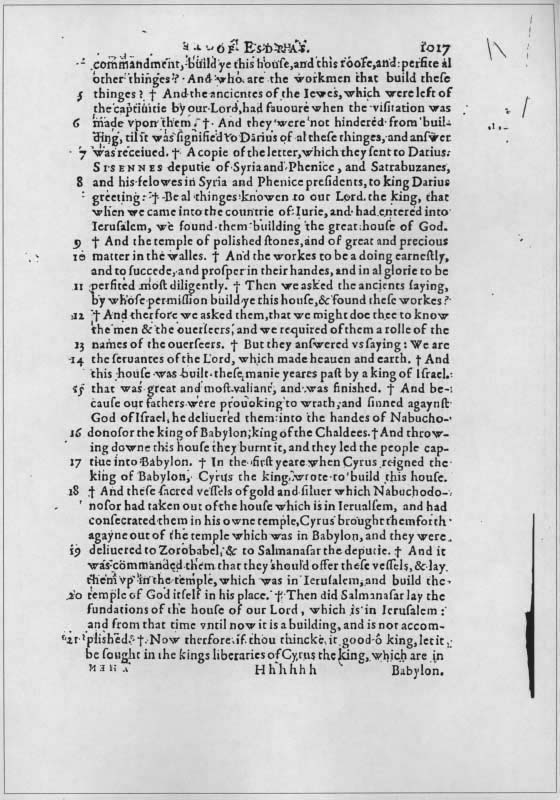 OF ESDRAS. 1017
commandment, build ye this house, and this roofe, and perfite al
other thinges? And who are the workmen that build these
5 thinges? † And the ancientes of the Iewes, which were left of
the captiuitie by our Lord, had fauoure when the visitation was
6 made vpon them. † And they were not hindered from buil-
ding, til it was signified to Darius of al these thinges, and answer
7 was receiued. † A copie of the letter, which they sent to Darius:
SISENNES deputie of Syria and Phenice, and Satrabuzanes,
8 and his felowes in Syria and Phenice presidents, to king Darius
greeting: † Be al thinges knowen to our Lord the king, that
when we came into the countrie of Iurie, and had entered into
Ierusalem, we found them building the great house of God.
9 † And the temple of polished stones, and of great and precious
10 matter in the walles. † And the workes to be a doing earnestly,
and to succede, and prosper in their handes, and in al glorie to be
11 perfited most diligently. † Then we asked the ancients saying,
by whose permission build ye this house, & found these workes?
12 † And therfore we asked them, that we might doe thee to know
the men & the ouerseers, and we required of them a rolle of the
13 names of the ouerseers. † But they answered vs saying: We are
14 the seruantes of the Lord, which made heauen and earth. † And
this house was built these manie yeares past by a king of Israel
15 that was great and most valiant, and was finished. † And be-
cause our fathers were prouoking to wrath, and sinned agaynst
God of Israel, he deliuered them into the handes of Nabucho-
16 donosor the king of Babylon, king of the Chaldees. † And throw-
ing downe this house they burnt it, and they led the people cap-
17 tiue into Babylon. † In the first yeare when Cyrus reigned the
king of Babylon, Cyrus the king wrote to build this house.
18 † And these sacred vessels of gold and siluer which Nabuchodo-
nosor had taken out of the house which is in Ierualsem, and had
consecrated them in his owne temple, Cyrus brought them forth
agayne out of the temple which was in Babylon, and they were
19 deliuered to Zorobabel, & to Salmanasar the deputie. † And it
was commanded them that they should offer these vessels, & lay
them vp in the temple, which was in Ierusalem, and build the
20 temple of God itself in his place. † Then did Salmanasar lay the
fundations of the house of our Lord, which is in Ierusalem:
and from that time vntil now it is a building, and is not accom-
21 plished. † Now therfore if thou thincke it good ô king, let it
be sought in the kings liberaries of Cyrus the king, which are in
Hhhhhh Babylon.